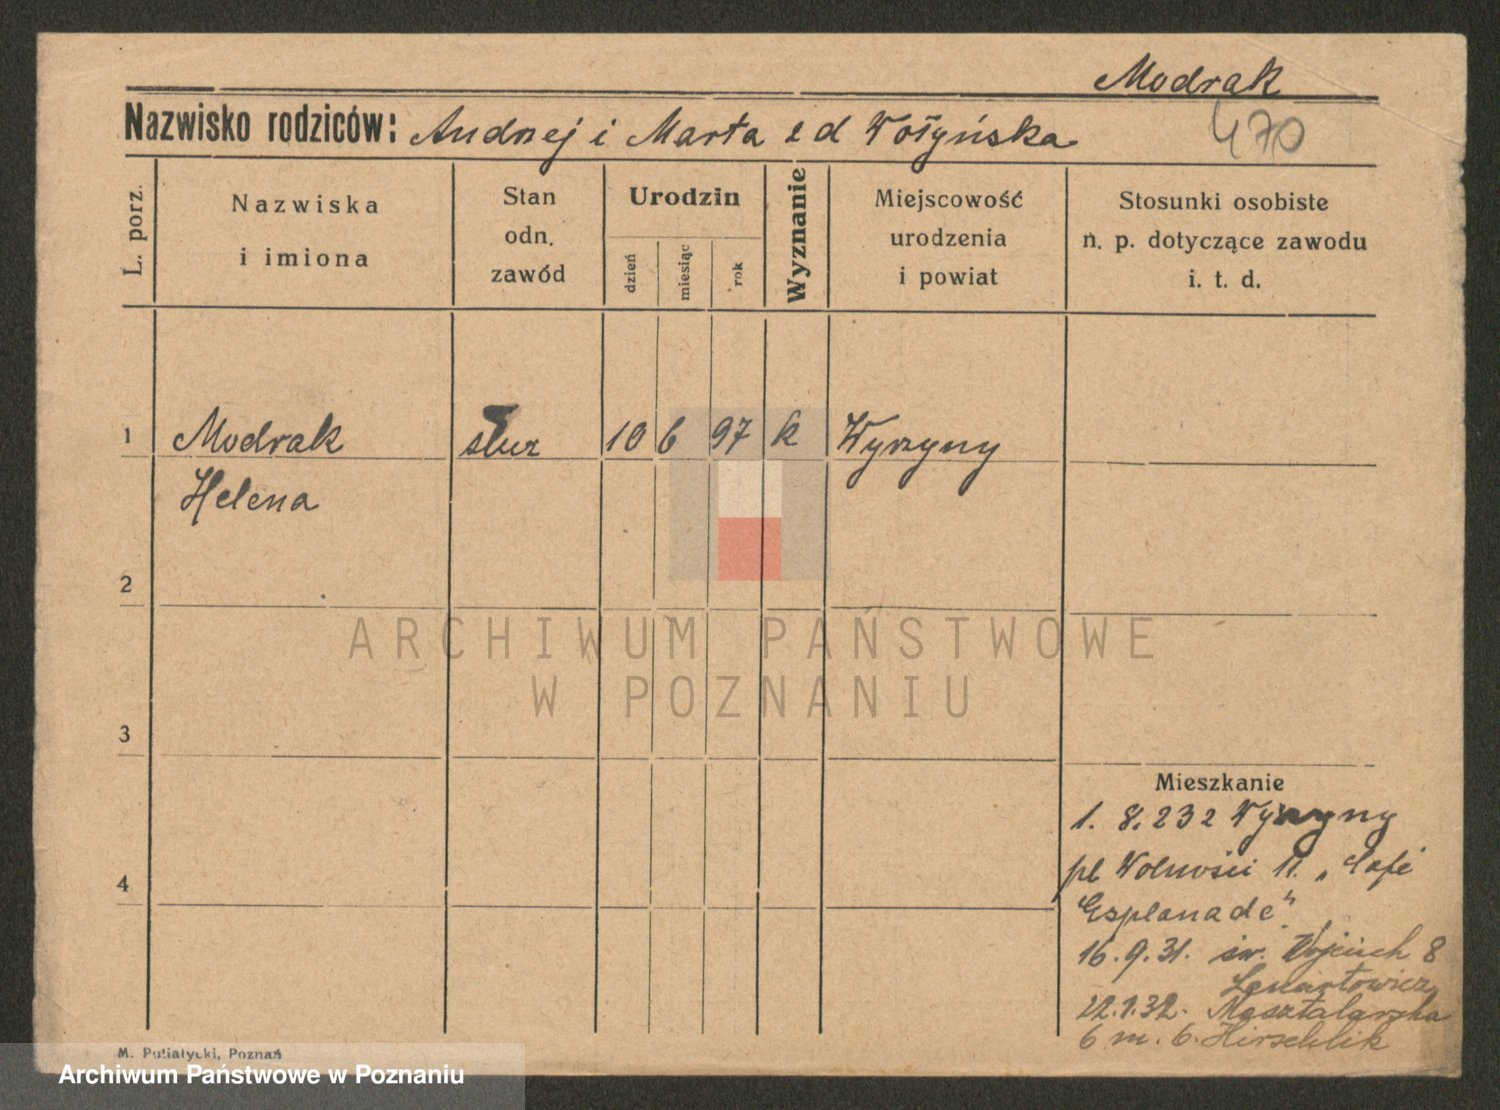 Modrak
Nazwisko rodziców: Andrzej i Marta z d Wołyńska
470
L. porz.
Nazwiska
i imiona
Stan
odn.
zawód
Urodzin
dzień
miesiąc
rok
Wyznanie
Miejscowość
urodzenia
i powiat
Stosunki osobiste
n. p. dotyczące zawodu
i. t. d.
1 Modrak służ 10 6 97 k Wyrzyny
Helena
2
ARCHIWUM PAŃSTWOWE
W POZNANIU
3
Mieszkanie
1. 8. 232 Wyrzyny
pl Wolności 11. „Café
Esplanade"
4
16. 9. 31. św. Wojciech 8
Lenartowicz
22.1.32. Masztalarska
6 m. 6. Hirschlik
M. Putiatycki, Poznań
Archiwum Państwowe w Poznaniu